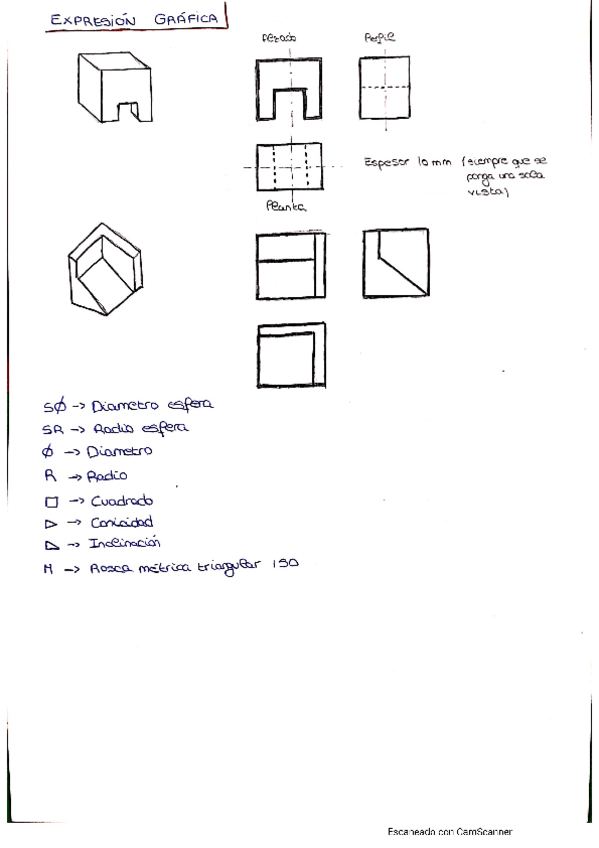 EXPRESIÓN GRÁFICA
Alzado
Perfil
Espesor 10 mm (siempre que se
ponga una sola
vista)
Planta
SØ -> Diametro esfera
SR -> Radio esfera
Ø -> Diametro
R -> Radio
□ -> Cuadrado
▷ -> Conicidad
◺ -> Inclinación
M -> Rosca métrica triangular ISO
Escaneado con CamScanner